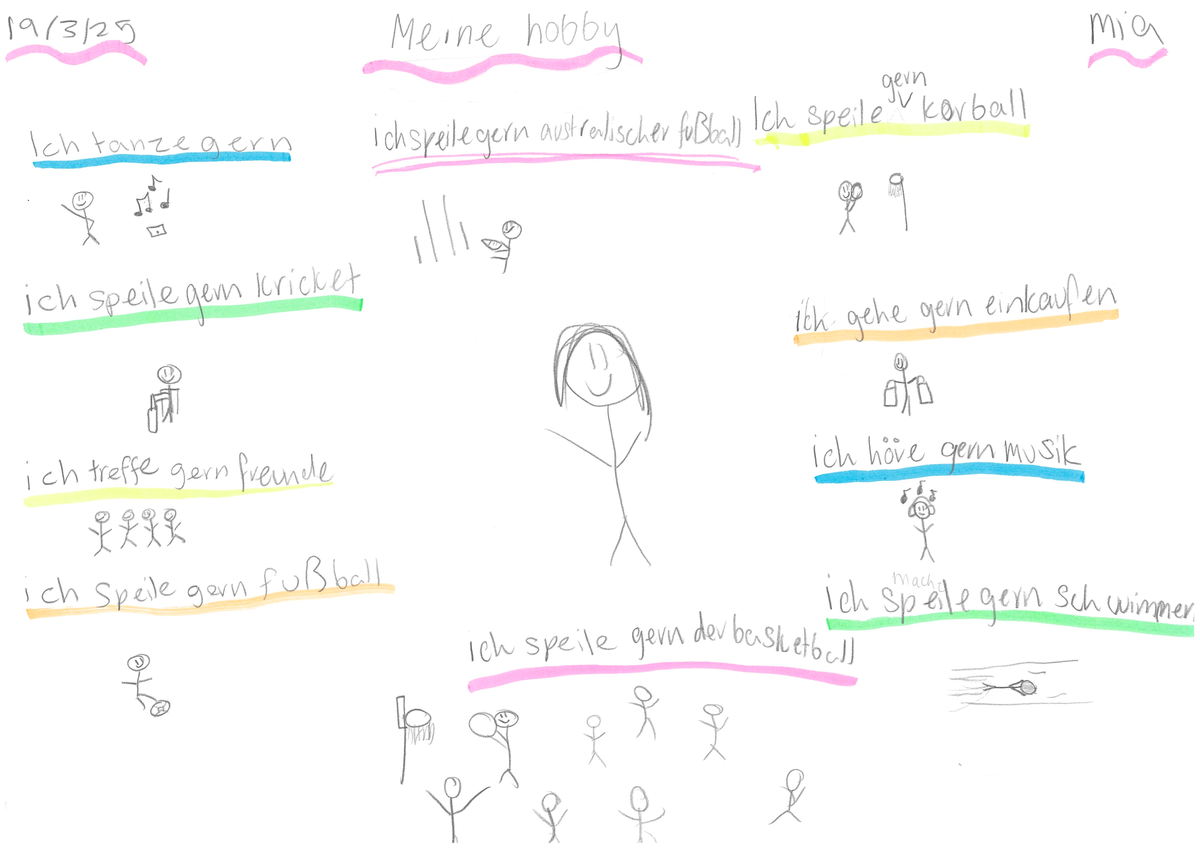 19/3/25
Meine hobby
mia
Ich tanze gern
ich speile gern australischer fußball
Ich speile gern korball
ich speile gern kricket
ich gehe gern einkaufen
ich treffe gern freunde
ich höre gern musik
ich speile gern fußball
mach
ich speile gern schwimmen
ich speile gern der basketball